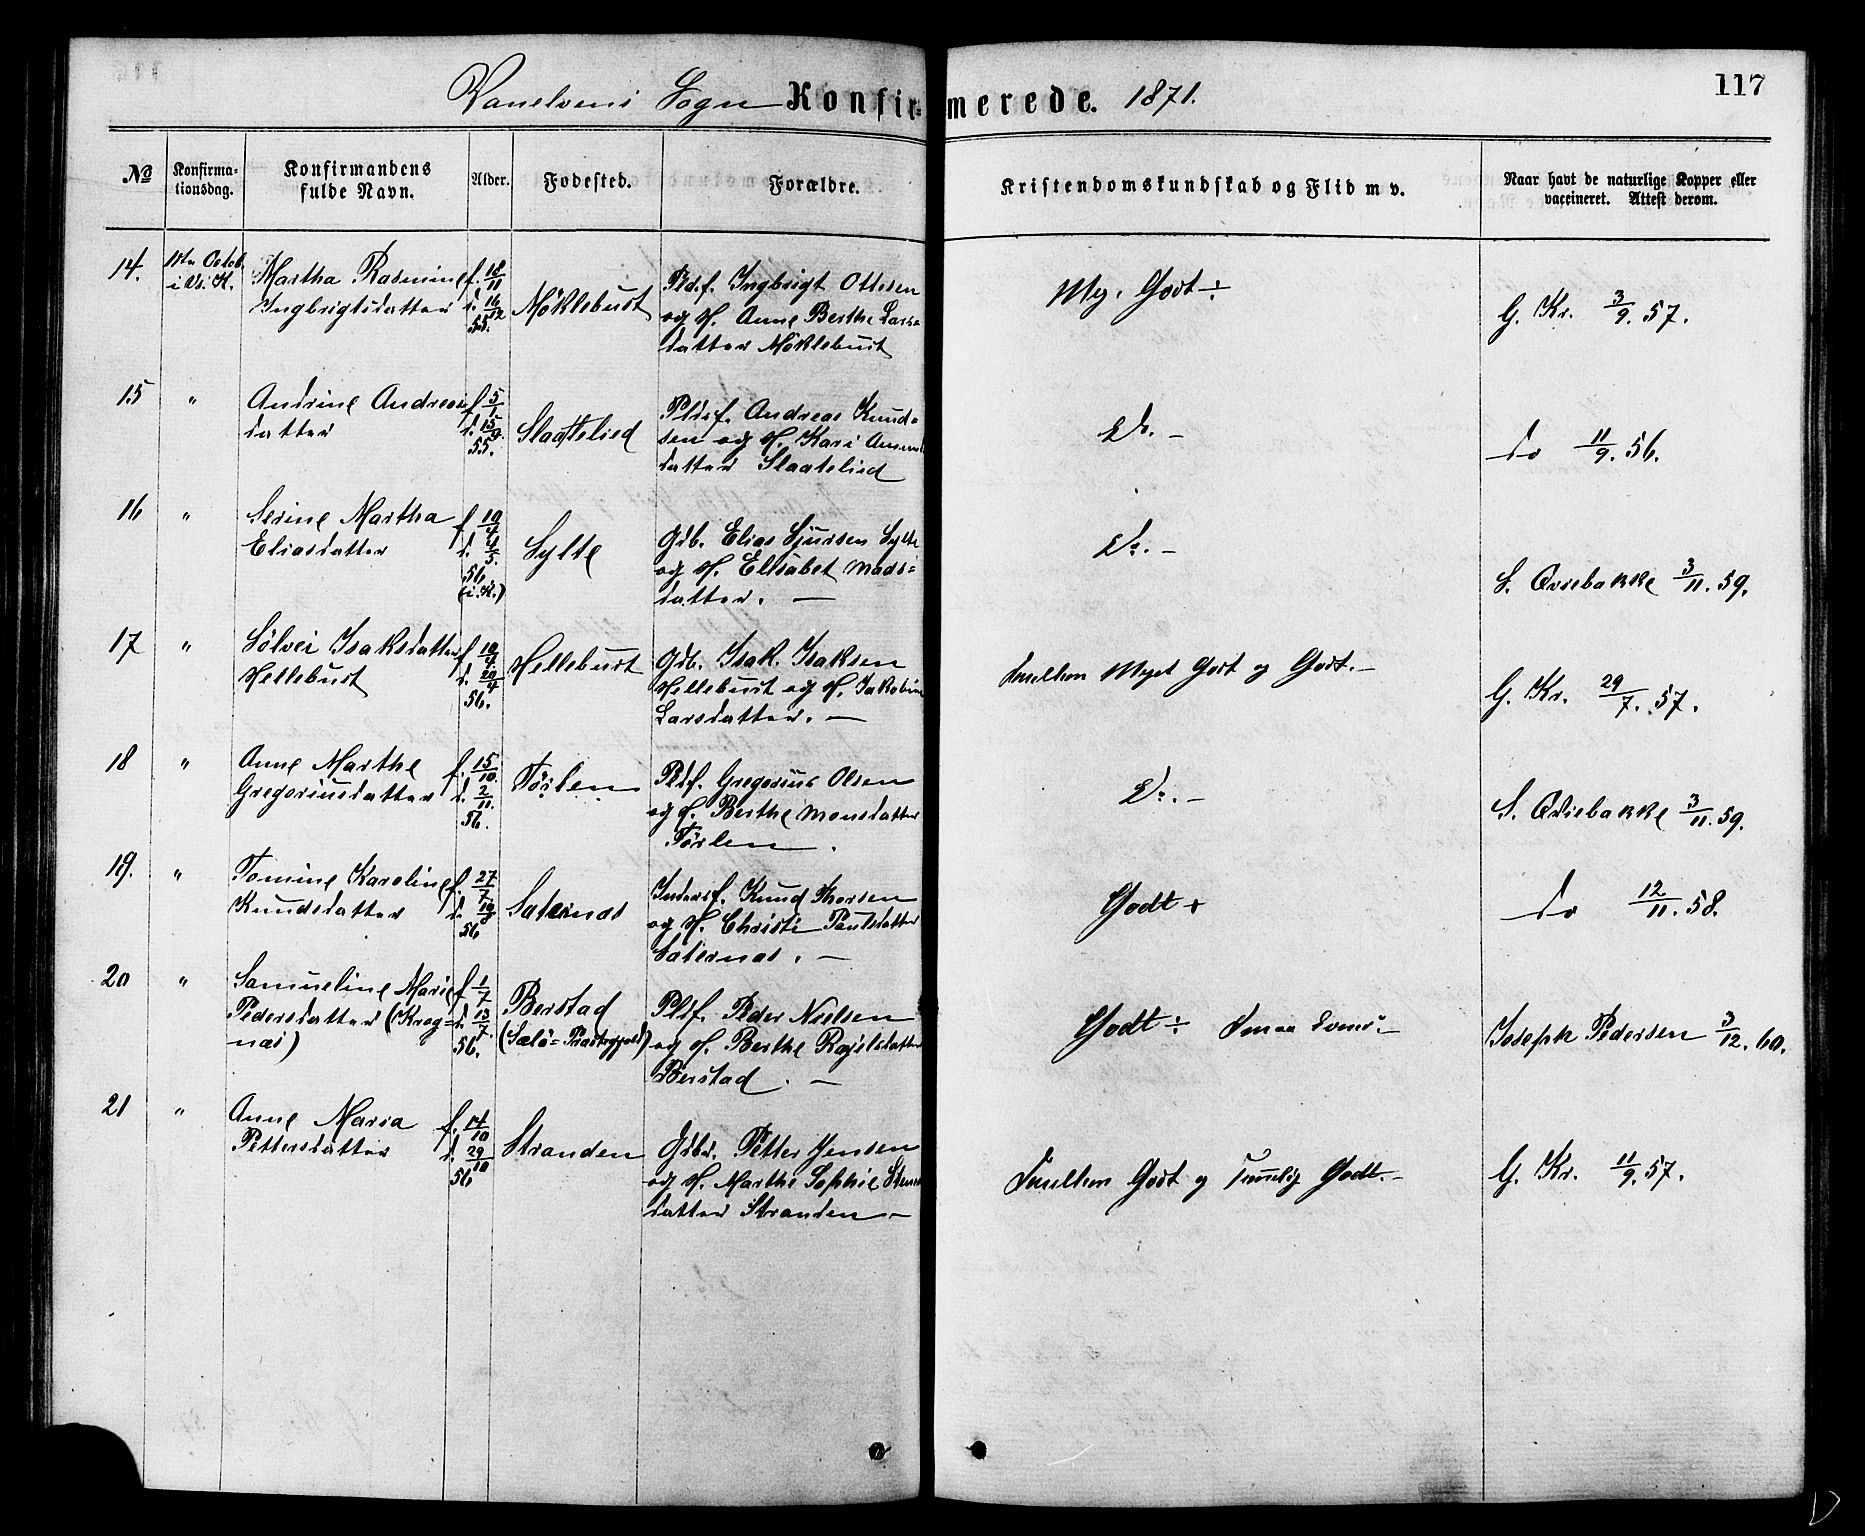 117
Vanelvens Sogn Konfirmerede. 1871.
№ Konfirmationsdag. Konfirmandens fulde Navn. Alder. Fødested. Forældre. Kristendomskundskab og Flid m v. Naar havt de naturlige Kopper eller vaccineret. Attest derom.
14. Octob. i K.
Martha Rasmine
Ingbrigtsdatter
f. 18/11
d. 16/12
55.
Möklebust
Pldsf. Ingbrigt Ottesen
og H. Anne Berthe Lars=
datter Möklebust
Meg. Godt ÷
G. Kr. 3/9. 57.
15 "
Andrine Andreas
datter
f. 5/1
d. 15/9
55.
Slaattelied
Pldsf. Andreas Knud=
sen og H. Kari
datter Slaatelied
Do. –
do 11/9. 56.
16 "
Serine Martha
Eliasdatter
f. 10/4
d. 4/5.
56
(i K.)
Sylte
Gdb. Elias Sjursen Sylte
og H. Elisabet Mads=
datter. —
Do. –
S. Øvrebakke 3/11. 59.
17 "
Sölvei Isaksdatter
Hellebust
f. 10/4.
d. 20/4
56.
Hellebust
Gdb. Isak Isaksen
Hellebust og H. Jakobine
Larsdatter. —
Imellem Meget Godt og Godt. –
G. Kr. 29/7. 57.
18 "
Anne Marthe
Gregoriusdatter
f. 15/10.
d. 2/11.
56.
Törlen
Pldsf. Gregorius Olsen
og H. Berthe Monsdatter
Törlen.
Do. –
S. Øvrebakke 3/11. 59.
19. "
Tomine Karoline
Knudsdatter
f. 27/7
d. 10/8
56
Saternas
Knud Thorsen
og H. Christi Paulsdatter
Saternas. —
Godt +
do 12/11. 58.
20 "
Samueline Marie
Pedersdatter (Krog=
næs)
f. 1/7
d. 13/7.
56.
Berstad
(Sælö= Præstegjeld)
Pldsf. Peder Nielsen
og H. Berthe
Berstad. —
Godt ÷ Smaa Evner. –
Joseph Pedersen 3/12. 60.
21 "
Anne Maria
Pettersdatter
f. 14/10
d. 29/10
56
Stranden
Gdbr. Petter Jensen
og H. Marthe Sophie
datter Stranden –
Imellem Godt og Temmelig Godt. –
G. Kr. 11/9. 57.